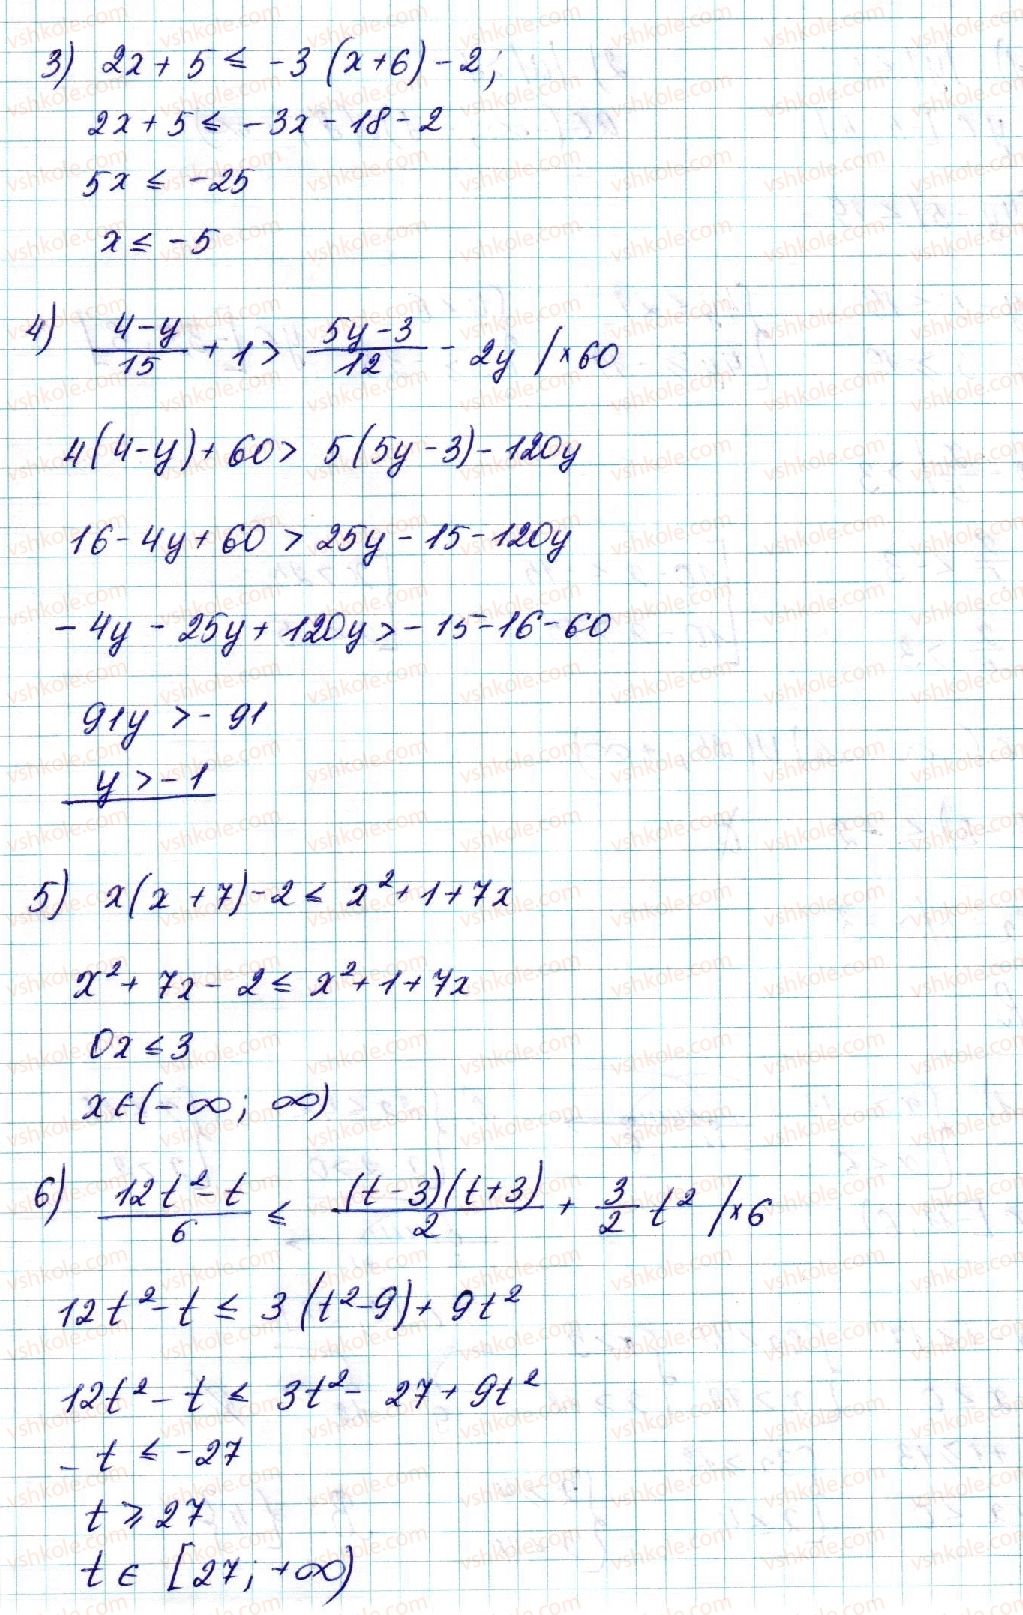 3) 2x + 5 ≤ -3 (x+6) - 2;
2x + 5 ≤ -3x - 18 - 2
5x ≤ -25
x ≤ -5
4) (4-y)/15 + 1 > (5y-3)/12 - 2y /×60
4(4-y) + 60 > 5(5y-3) - 120y
16 - 4y + 60 > 25y - 15 - 120y
-4y - 25y + 120y > -15 - 16 - 60
91y > -91
y > -1
5) x(x+7) - 2 ≤ x² + 1 + 7x
x² + 7x - 2 ≤ x² + 1 + 7x
0x ≤ 3
x ∈ (-∞; ∞)
6) (12t² - t)/6 ≤ (t-3)(t+3)/2 + 3/2 t² /×6
12t² - t ≤ 3(t² - 9) + 9t²
12t² - t ≤ 3t² - 27 + 9t²
-t ≤ -27
t ≥ 27
t ∈ [27; +∞)
vshkole.com